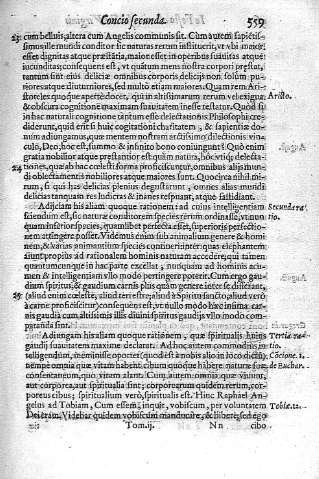 Concio secunda. 559
23 cum belluis, altera cum Angelis communis sit. Cum autem sapientis-
simus ille mundi conditor sic naturas rerum instituerit, vt vbi maior
esset dignitas atque præstātia, maior esset in operibus suauitas atque
iucunditas; consequens est, vt quātum mens nostra corpori præstat,
tantum sint eius deliciæ omnibus corporis delicijs non solum pu-
riores atque diuturniores, sed multò etiam maiores. Quam rem Ari-
stoteles quoque apertè docet, qui in altissimarum rerum vel exigua
Aristo.
& obscura cognitione maximam suauitatem inesse testatur. Quòd si
in hac naturali cognitione tantum esse delectationis Philosophi cre-
diderunt, quid erit si huic cogitationi charitatem, & sapientiæ do-
num adiungamus, quæ mentem nostram arctissimo dilectionis vin-
culo, Deo, hoc est, summo & infinito bono coniungunt? Quò enim
gratia nobilior atque præstantior est quàm natura, hòc vtiq; delecta-
24 tiones, quæ ab hac cœlesti forma proficiscuntur, omnibus alijs mun-
di oblectamentis nobiliores atque maiores sunt. Quocirca nihil mi-
rum, si qui has delicias plenius degustarunt, omnes alias mundi
delicias tanquam res ludicras & inanes respuant, atque fastidiant.
Adijciam his aliam quoque rationem: ad cuius intelligentiam
Secunda ra
sciendum est, sic naturæ conditorem species rerum ordinasse, vt nun
tio.
quam inferior species, quamlibet perfecta esset, superioris perfectio-
nem attingere posset. Videmus enim sub animalium genere & homi-
nem, & varias animantium species contineri: inter quas elephantem
aiunt propius ad rationalem hominis naturam accedere, qui tamen
quantumcunque in hac parte excellat, nunquam ad hominis acu-
men & intelligentiam vllo modo pertingere poterit. Cùm ergo gau-
dium spiritus, & gaudium carnis plus quàm genere inter se distent,
25 (aliud enim cœleste, aliud terrestre; aliud à Spiritu sancto, aliud verò
à carne proficiscitur) consequens est, vt nullo modo hæc infima car-
nis gaudia cum altissimis illis diuini spiritus gaudijs vllo modo com-
paranda sint.
Adiungam his aliam quoque rationem, quæ spiritualis huius
Tertia ra-
gaudij suauitatem maximè declarat. Ad hoc autem commodius in-
tio.
telligendum, meminisse oportet (quod est à nobis alio in loco dictū)
Cōcione. 1.
nempe omnia quæ vitam habent, cibum quoque habere naturæ suæ
de Euchar.
consentaneum, quo vitam alant. Cùm autem omnia quæ viuunt,
aut corporea, aut spiritualia sint; corporearum quidem rerum, cor-
poreus cibus; spiritualium verò, spiritualis est. Hinc Raphael An-
gelus ad Tobiam, Cum essem, inquit, vobiscum, per voluntatem
Tobiæ. 12.
Dei eram. Videbar quidem vobiscum manducare, & bibere; sed ego
Tom. ij. N n cibo